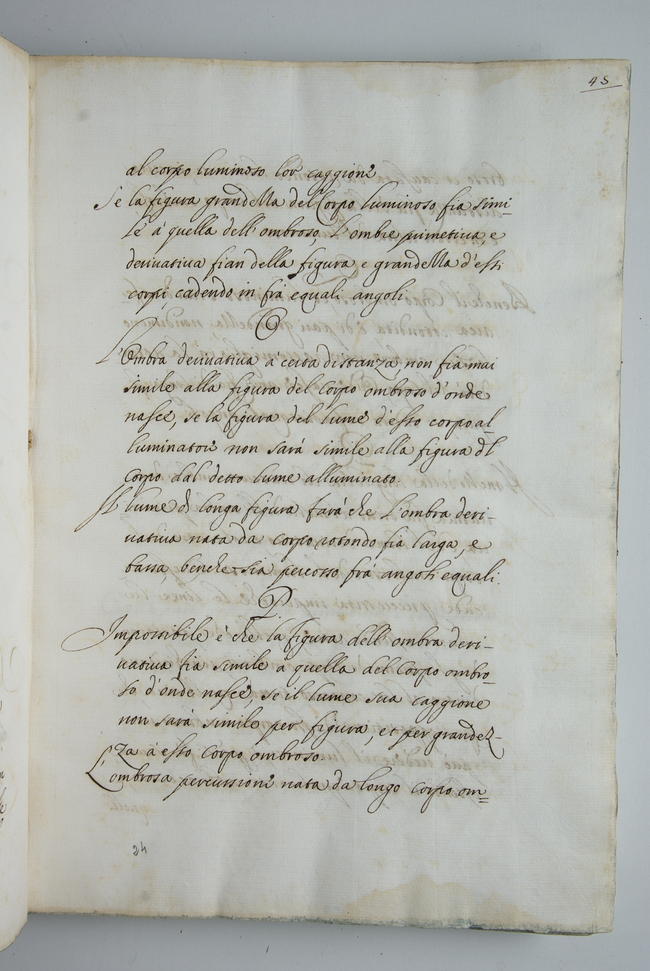 45
al corpo luminoso lor caggione
Se la figura grandezza del Corpo luminoso fia simi-
le à quella dell'ombroso, L'ombre primetiva, e
derivativa fian della figura e grandezza d'essi
corpi, cadendo in frà equali angoli.
O
L'Ombra derivativa à certa distanza, non fia mai
simile alla figura del corpo ombroso d'onde
nasce, se la figura del lume d'esso corpo al-
luminatore non sarà simile alla figura dl
Corpo dal detto lume alluminato.
Il lume di longa figura farà che L'ombra deri-
vativa nata da corpo rotondo fia larga, e
bassa, benche sia percosso frà angoli equali.
P.
Impossibile è che la figura dell'ombra deri-
vativa fia simile à quella del Corpo ombro-
so d'onde nasce, se il lume sua caggione
non sarà simile per figura, et per grandez-
za à esso corpo ombroso.
L'ombrosa percussione nata da longo corpo om=
24